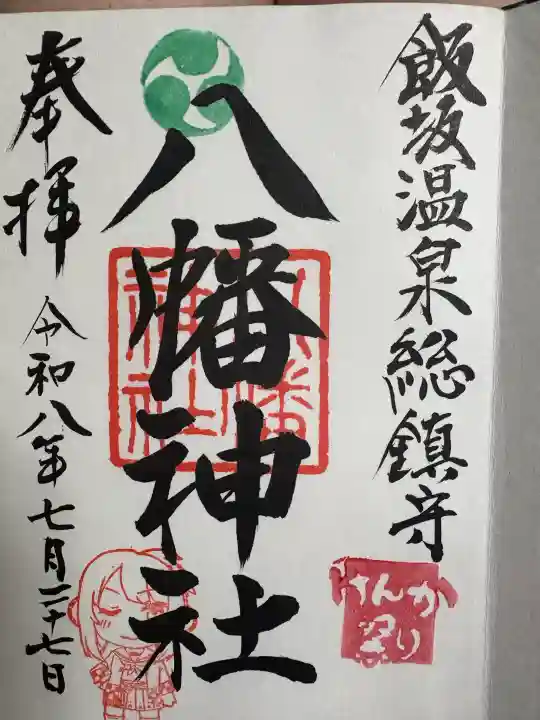 飯坂温泉総鎮守
けんか祭り
八幡神社
八幡神社
奉拝
令和八年七月二十七日